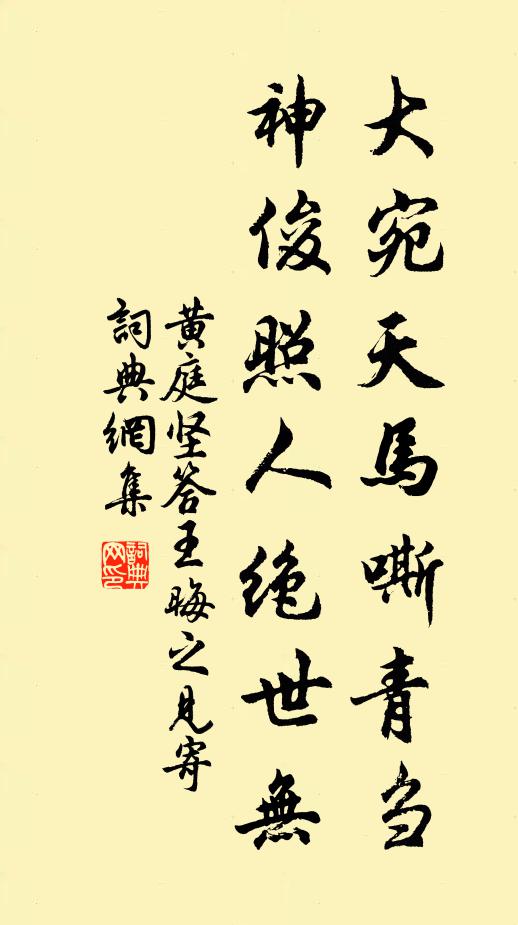 大宛天馬嘶青刍
神俊照人絶世無
黄庭坚答王晦之見寄
詞典網集
詞典
网印